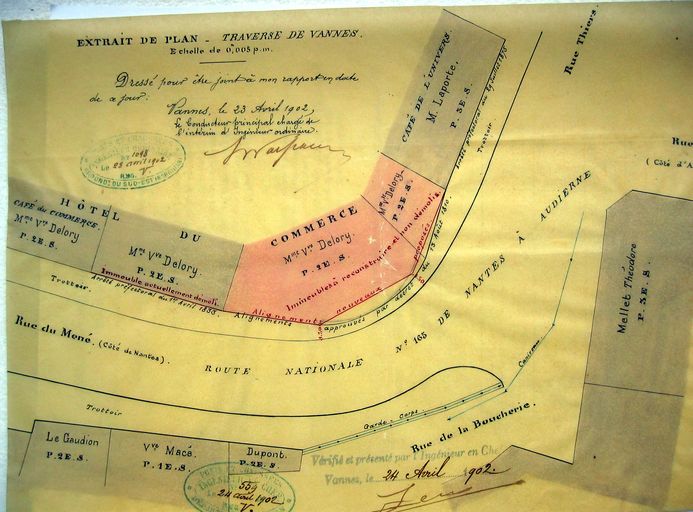 EXTRAIT DE PLAN - TRAVERSE DE VANNES.
Echelle de 0,005 p.m.
Dressé pour être joint à mon rapport en date
de ce jour:
Vannes, le 23 Avril 1902,
Le Conducteur principal chargé de
l'intérim d'Ingénieur ordinaire.
1098
Le 23 avril 1902
CAFÉ DE L'UNIVERS.
M. Laporte,
P. 3E.S.
Trottoir
Rue Thiers.
Rue
(Côté d'A
HÔTEL DU COMMERCE
CAFÉ DU COMMERCE.
Mme Vve Delory
P. 2E.S.
Mme Vve Delory.
P. 2E.S.
Immeuble actuellement démoli.
Mme Vve Delory.
P. 2E.S.
Immeubles à reconstruire et non démolis.
Mme Vve Delory.
P. 2E.S.
Alignements nouveaux proposés.
Alignements approuvés par décret du 13 Août 1810.
Trottoir.
Arrêté préfectoral du 1er Avril 1850.
Rue du Mené. (Côté de Nantes).
ROUTE NATIONALE No 165 DE NANTES À AUDIERNE
Mellet Théodore
P. 3E.S.
Caniveau
Trottoir
Garde-Corps.
Rue de la Boucherie.
Le Gaudion
P. 2E.S.
Vve Macé.
P. 1E.S.
Dupont.
P. 2E.S.
559
24 avril 1902
Vérifié et présenté par l'Ingénieur en Che
Vannes, le 24 Avril 1902.